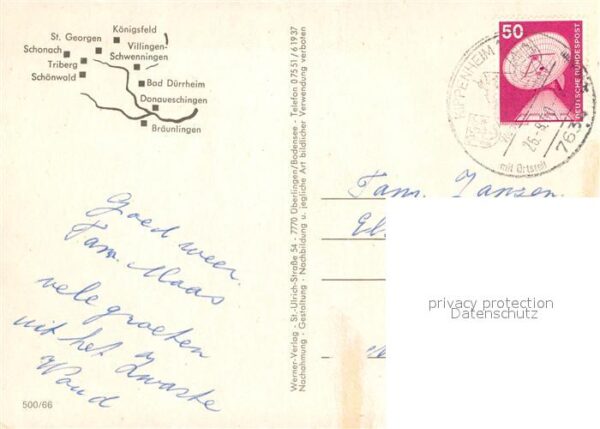 Königsfeld
St. Georgen
Villingen-
Schonach
Schwenningen
Triberg
Schönwald
Bad Dürrheim
Donaueschingen
Bräunlingen
Goed weer.
Fam. Maas
vele groeten
uit het Zwarte
Woud
500/66
Werner-Verlag - St.-Ulrich-Straße 54 - 7770 Überlingen/Bodensee - Telefon 07551/61937
Nachahmung - Gestaltung - Nachbildung u. jegliche Art bildlicher Verwendung verboten
50
DEUTSCHE BUNDESPOST
mit Ortsteil
763
Fam. Janzen
privacy protection
Datenschutz